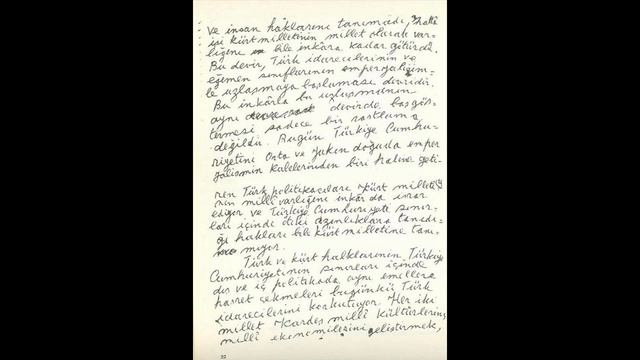 ve insan haklarını tanımadı, hattâ
işi kürt milletinin millet olarak var-
lığını bile inkâra kadar götürdü.
Bu devir, Türk idarecilerinin ve
egemen sınıflarının emperyalizm-
le uzlaşmaya başlaması devridir.
Bu inkârla bu uzlaşmanın
aynı devirde başgös-
termesi sadece bir rastlama
değildir. Bugün Türkiye Cumhu-
riyetini Orta ve Yakın doğuda emper
yalizmin kalelerinden biri haline geti-
ren Türk politikacıları Kürt milleti-
nin millî varlığını inkârda israr
ediyor ve Türkiye Cumhuriyeti sınır-
ları içinde öteki azınlıklara tanıdı-
ğı hakları bile kürt milletine tanı-
mıyor.
Türk ve kürt halklarının, Türkiye
Cumhuriyetinin sınırları içinde
dış ve iç politikada aynı emellere
hasret çekmeleri bugünkü Türk
idarecilerini korkutuyor. Her iki
millet kardeş millî kültürlerini,
millî ekonomilerini geliştirmek,
22